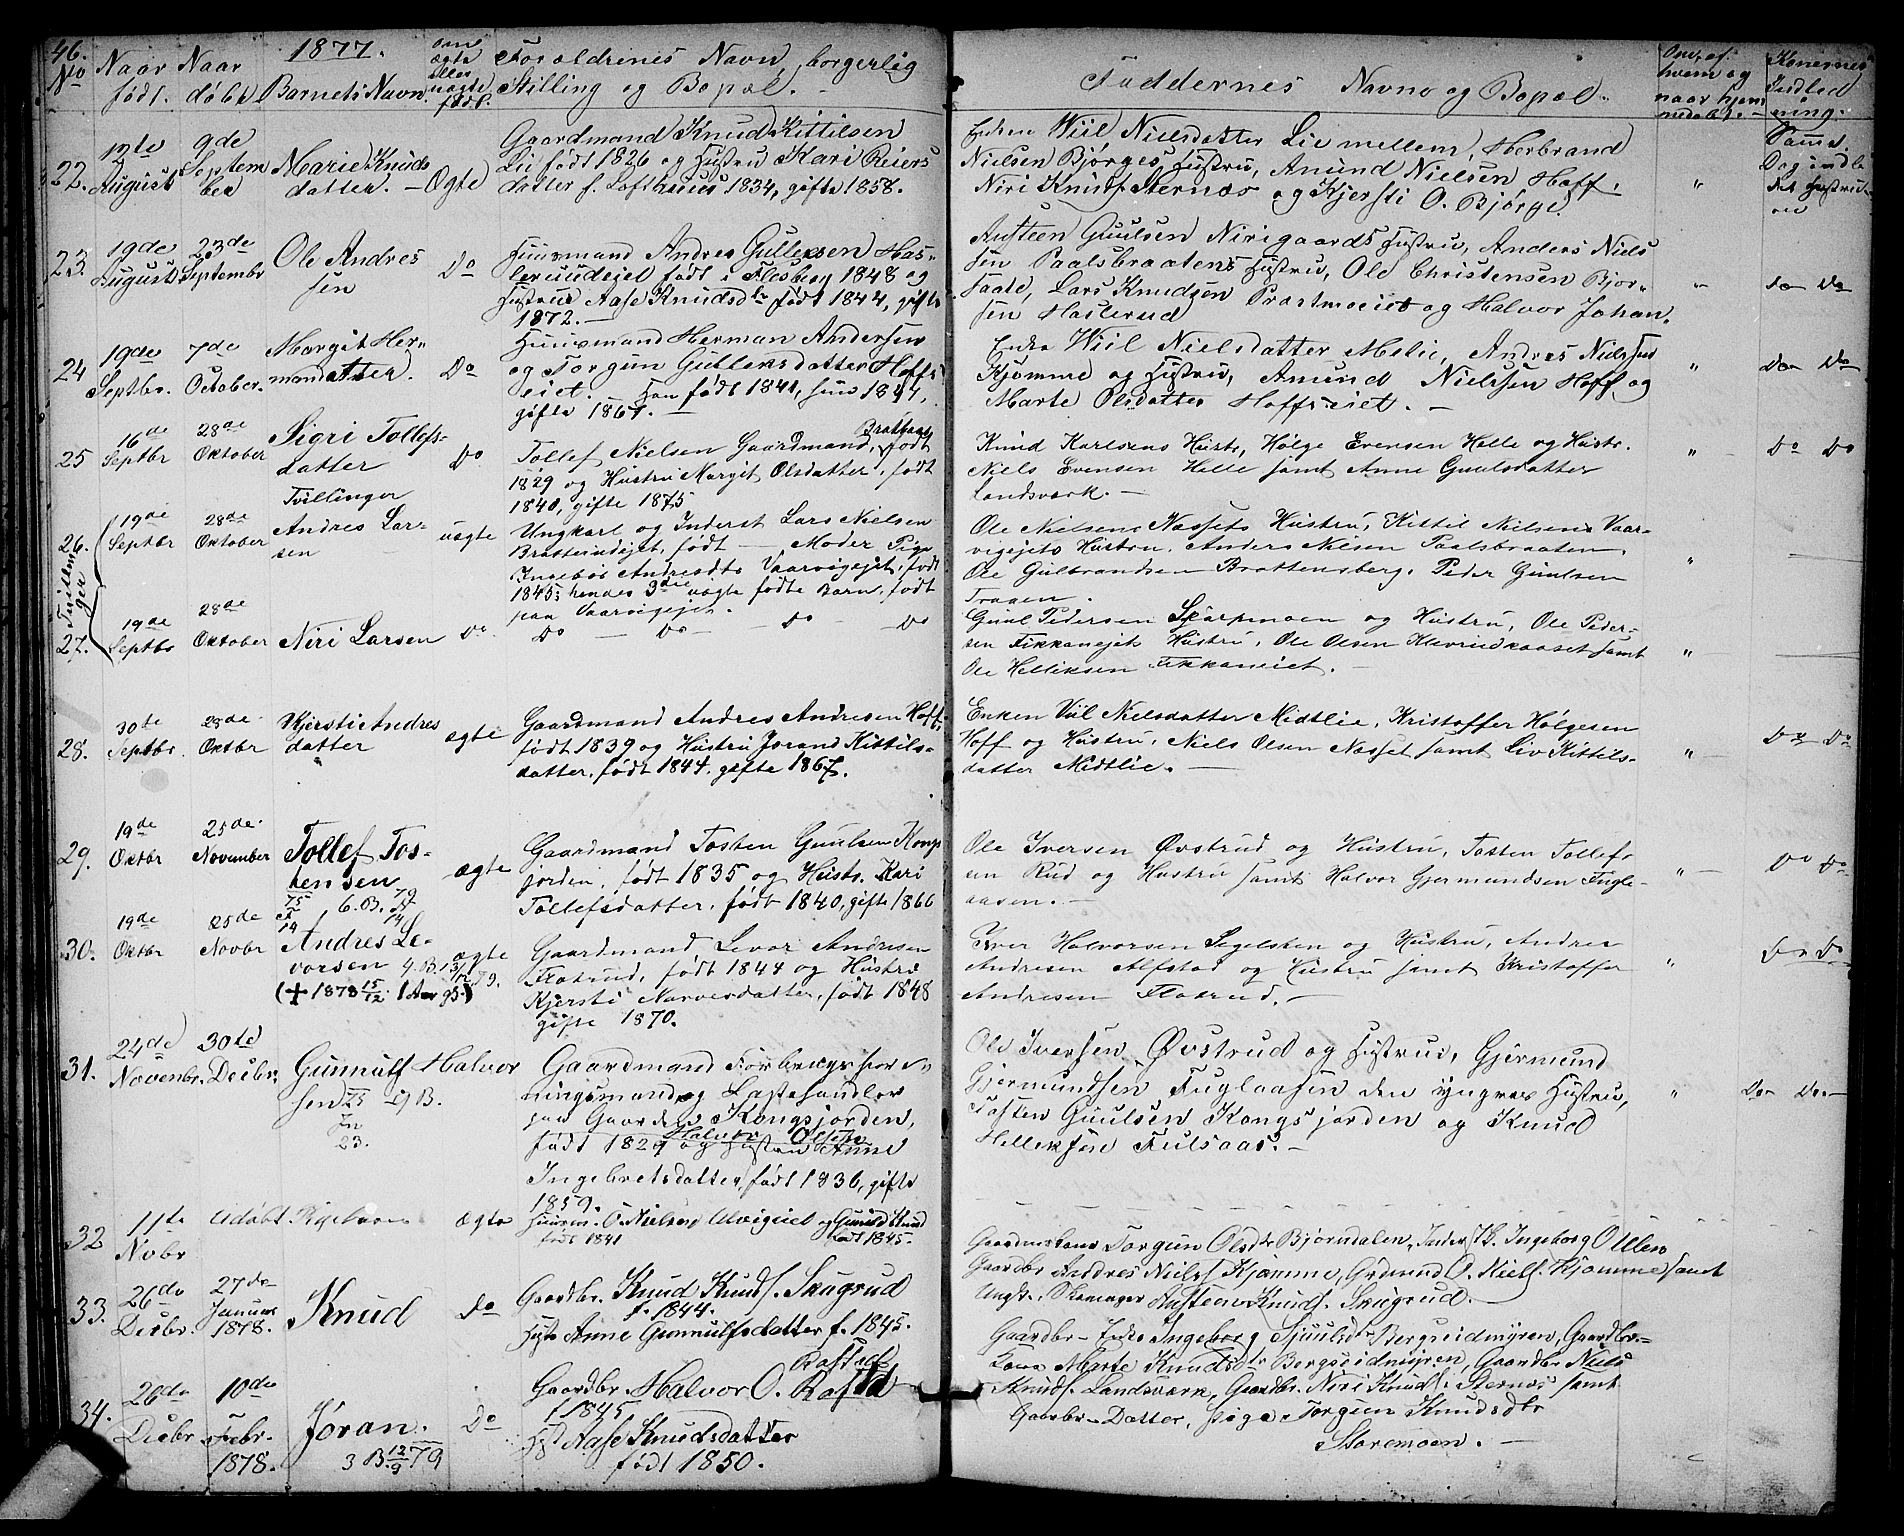 46. 1877.
No Naar født. Naar døbt Barnets Navn. om ægte eller uægte født. Forældrenes Navn, borgerlig Stilling og Bopæl. Faddernes Navne og Bopæl. Om, af hvem og naar hjemmedøbt. Konernes Indledning.
22. 12te August 9de September Marie Knuds
datter. Ægte
Gaardmand Knud Kittilsen
Lie født 1826 og Hustru Kari Reiers
datter f. Lofthuus 1834, gifte 1858.
Enken Wiil Nielsdatter Lie mellem, Herbrand
Nielsen Bjørges Hustru, Amund Nielsen Hoff,
Niri Knuts. Sternæs og Kjersti O. Bjørge.
" Samme Dag indledet Hustruen
23. 19de August 23de Septembr Ole Andres
sen Do
Huusmand Andres Gulleksen Has-
lerudeiet født i Flesberg 1848 og
Hustrue Aase Knudsdtr født 1844, gifte
1872.
Austeen Guulsen Nirigaards Hustru, Anders Niel
sen Paalsbraatens Hustru, Ole Christensen Bjør-
saate, Lars Knudsen Præstmoeiet og Halvor Johan
sen Haslerud
" Do Do
24 19de Septbr. 7de October. Margit Her-
mandatter. Do
Huusmand Herman Andersen
og Torgun Gullensdatter Hoffs
eiet. Han født 1841, hun 1844,
gifte 1867.
Enke Wiil Nielsdatter Melie, Andres Nielssen
Kjømme og Hustru, Amund Nielssen Hoff og
Marte Olsdatter Hoffseiet.
" Do Do
25 16de Septbr 28de Oktober Sigri Tollefs-
datter Do
Tollef Nielsen Gaardmand, født
1829 og Hustru Margit Olsdatter, født
1840, gifte 1875
Knud Karlsens Hustr, Hølge Evensen Helle og Hustr.
Niels Evensen Helle samt Anne Guulsdatter
Landsværk.
" Do Do
Tvillinger
26. 19de Septbr 28de Oktober Andres Lar-
sen uægte
Ungkarl og Inderst Lars Nielsen
Bratterudejet, født — Moder Pige
Ingebør Andresdtr Vaarvigejet, født
1845; hendes 3die uægte fødte Barn, født
paa Vaarvigejet.
Ole Nielsens Næssets Hustru, Kittil Nielsens Vaar-
vigejets Hustru. Anders Nilsen Paalsbraaten,
Ole Gulbrandsen Brattensberg. Peder Guulsen
Traaen.
"
Tvillinger
27. 19de Septbr 28de Oktober Niri Larsen Do Do — Do — Do Do
Guul Pedersen Skjærpmoen og Hustru, Ole Peder-
sen Fikkanejet Hustru, Ole Olsen Klevrudkaaset samt
Ole Helliksen Fikkaneiet.
"
28. 30te Septbr. 28de Oktbr Kjersti Andres
datter ægte
Gaardmand Andres Andresen Hoff,
født 1839 og Hustru Jorand Kittils-
datter, født 1844. gifte 1867.
Enken Viil Nielsdatter Midtlie, Kristoffer Hølgesen
Hoff og Hustru, Niels Olsen Næsset samt Liv Kittils-
datter Midtlie.
" Do Do
29. 19de Oktbr 25de November Tollef Tos-
tensen ægte
Gaardmand Tosten Guulsen Kongs
jorden, født 1835 og Hustr. Kari
Tollefsdatter, født 1840, gifte 1866
Ole Iversen Øvstrud og Hustru, Tosten Tollef-
sen Rud og Hustru samt Halvor Gjermundsen Fugle-
aasen.
" Do Do
30. 19de Oktbr 25de Novbr Andres Le-
vorsen ægte
(+ 1878 15/12. 1 Aar g.)
Gaardmand Levor Andresen
Flatrud, født 1844 og Hustru
Kjersti Narvesdatter, født 1848
gifte 1870.
Iver Halvorsen Segelsten og Hustru, Andres
Andresen Alfstad og Hustru samt Kristoffer
Andresen Flatrud.
" Do Do
31. 24de Novenbr. 30te Decbr. Gunnulf Halvor
sen
23.
Gaardmand Forbrugsfor-
ningsmand og Lastehandler
paa Gaarden Kongsjorden,
Halvor Olsen
født 1829 og Hustru Anne
Ingebretsdatter, født 1836, gifte
1859.
Ole Iversen Øvstrud og Hustrue, Gjermund
Gjermundsen Fuglaasen den yngres Hustru,
Tosten Guulsen Kongsjorden og Knud
Helleksen Fulsaas.
" Do Do
32 11te Nobr Udøbt Pigebarn ægte
Huusm. O. Nielsen Ulvigeiet og Gunild Knud
født 1841 født 1845.
33. 26de Decbr. 27de Januar 1878. Knud Do
Gaardbr. Knud Knuds. Skugrud
f. 1844.
Hustr Anne Gunnulfsdatter f. 1845.
Gaardmkone Torgun Olsdtr Bjørndalen, Inderst k. Ingeborg O Ullen
Gaardbr Andres Niels. Kjømme, Gudmund O. Niels. Kjømme samt
Austeen Knuds. Skugrud.
34. 26de Decbr. 10de Febr. 1878. Jøran. Do
3 B. 12/9 79
Rastad
Gaardbr. Halvor O. Rastad
f 1845
Hust Aase Knudsdatter
født 1850.
Gaardbr-Enke Ingeborg Sjuulsdtr Bergseidmyren, Gaardbr-
Kone Marte Knudsdtr Bergseidmyren, Gaardbr Niels
Knuds. Landsværk, Gaardbr. Niri Knuds. Sternes samt
Gaardbr-Datter, Pige Torgun Knudsdtr
Storemoen.